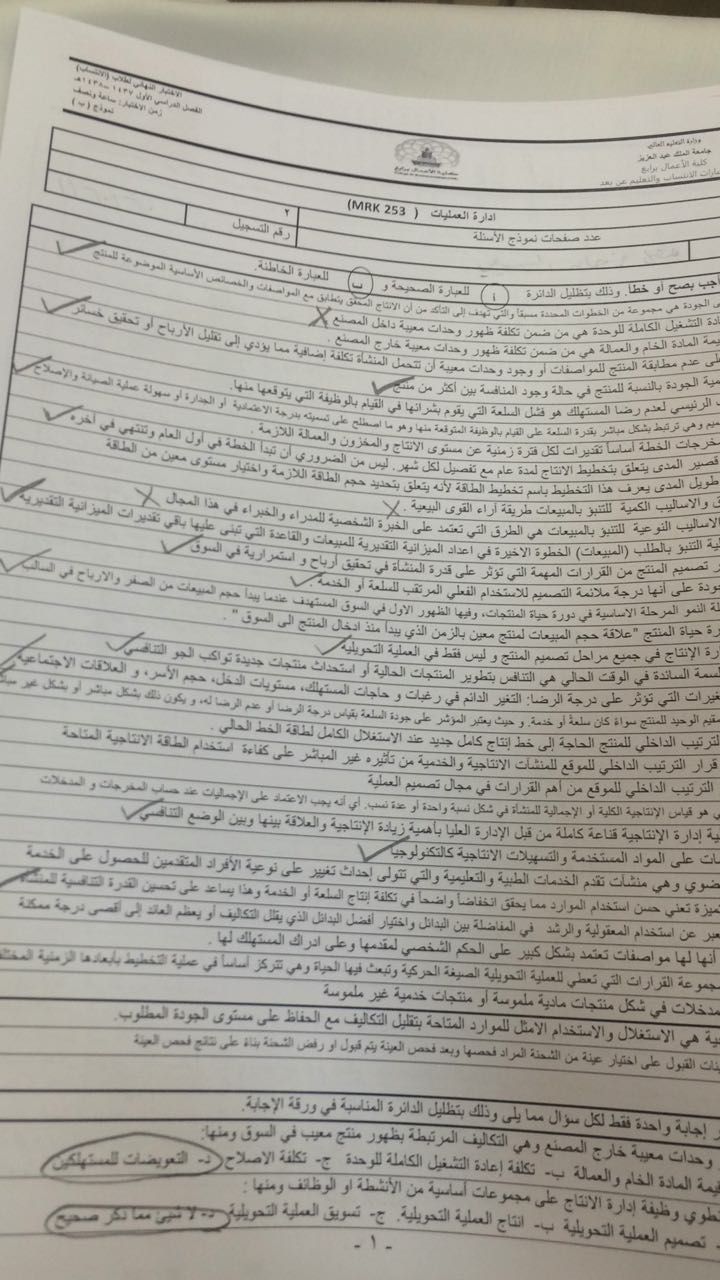 وزارة التعليم العالي
جامعة الملك عبد العزيز
كلية الأعمال برابغ
الانتساب والتعليم عن بعد
كلية الأعمال برابغ
الاختبار النهائي لطلاب (الانتساب)
الفصل الدراسي الأول ١٤٣٧ – ١٤٣٨هـ
زمن الاختبار: ساعة ونصف
نموذج ( ب )
ادارة العمليات ( MRK 253)
عدد صفحات نموذج الأسئلة ٢ رقم التسجيل
اجب بصح أو خطا. وذلك بتظليل الدائرة أ للعبارة الصحيحة و ب للعبارة الخاطئة.
الجودة هي مجموعة من الخطوات المحددة مسبقاً والتي تهدف إلى التأكد من أن الانتاج المحقق يتطابق مع المواصفات والخصائص الأساسية الموضوعة للمنتج
التشغيل الكاملة للوحدة هي من ضمن تكلفة ظهور وحدات معيبة داخل المصنع
المادة الخام والعمالة هي من ضمن تكلفة ظهور وحدات معيبة خارج المصنع .
على عدم مطابقة المنتج للمواصفات أو وجود وحدات معيبة أن تتحمل المنشأة تكلفة إضافية مما يؤدي إلى تقليل الأرباح أو تحقيق خسائر
الجودة بالنسبة للمنتج في حالة وجود المنافسة بين أكثر من منتج
الرئيسي لعدم رضا المستهلك هو فشل السلعة التي يقوم بشرائها في القيام بالوظيفة التي يتوقعها منها.
وهي ترتبط بشكل مباشر بقدرة السلعة على القيام بالوظيفة المتوقعة منها وهو ما اصطلح على تسميته بدرجة الاعتمادية أو الجدارة أو سهولة عملية الصيانة والإصلاح
مخرجات الخطة أساساً تقديرات لكل فترة زمنية عن مستوى الانتاج والمخزون والعمالة اللازمة .
قصير المدى يتعلق بتخطيط الانتاج لمدة عام مع تفصيل لكل شهر. ليس من الضروري أن تبدأ الخطة في أول العام وتنتهي في آخره
طويل المدى يعرف هذا التخطيط باسم تخطيط الطاقة لأنه يتعلق بتحديد حجم الطاقة اللازمة واختيار مستوى معين من الطاقة
والاساليب الكمية للتنبؤ بالمبيعات طريقة أراء القوى البيعية .
الاساليب النوعية للتنبؤ بالمبيعات هي الطرق التي تعتمد على الخبرة الشخصية للمدراء والخبراء في هذا المجال
التنبؤ بالطلب (المبيعات) الخطوة الاخيرة في اعداد الميزانية التقديرية للمبيعات والقاعدة التي تبنى عليها باقي تقديرات الميزانية التقديرية
تصميم المنتج من القرارات المهمة التي تؤثر على قدرة المنشأة في تحقيق أرباح و استمرارية في السوق
على أنها درجة ملائمة التصميم للاستخدام الفعلي المرتقب للسلعة أو الخدمة .
النمو المرحلة الاساسية في دورة حياة المنتجات، وفيها الظهور الاول في السوق المستهدف عندما يبدأ حجم المبيعات من الصفر والارباح في السالب
حياة المنتج "علاقة حجم المبيعات لمنتج معين بالزمن الذي يبدأ منذ ادخال المنتج الى السوق " .
الإنتاج في جميع مراحل تصميم المنتج و ليس فقط في العملية التحويلية
السائدة في الوقت الحالي هي التنافس بتطوير المنتجات الحالية أو استحداث منتجات جديدة تواكب الجو التنافسي
التي تؤثر على درجة الرضا: التغير الدائم في رغبات و حاجات المستهلك، مستويات الدخل، حجم الأسر، و العلاقات الاجتماعية
الوحيد للمنتج سواءً كان سلعة أو خدمة. و حيث يعتبر المؤشر على جودة السلعة بقياس درجة الرضا أو عدم الرضا له، و يكون ذلك بشكل مباشر أو بشكل غير
الترتيب الداخلي للمنتج الحاجة إلى خط إنتاج كامل جديد عند الاستغلال الكامل لطاقة الخط الحالي .
قرار الترتيب الداخلي للموقع للمنشآت الانتاجية والخدمية من تأثيره غير المباشر على كفاءة استخدام الطاقة الانتاجية المتاحة
الترتيب الداخلي للموقع من أهم القرارات في مجال تصميم العملية
هو قياس الإنتاجية الكلية أو الإجمالية للمنشأة في شكل نسبة واحدة أو عدة نسب. أي أنه يجب الاعتماد على الإجماليات عند حساب المخرجات و المدخلات
إدارة الإنتاجية قناعة كاملة من قبل الإدارة العليا بأهمية زيادة الإنتاجية والعلاقة بينها وبين الوضع التنافسي
على المواد المستخدمة والتسهيلات الانتاجية كالتكنولوجيا
وهي منشآت تقدم الخدمات الطبية والتعليمية والتي تتولى إحداث تغيير على نوعية الأفراد المتقدمين للحصول على الخدمة
تعني حسن استخدام الموارد مما يحقق انخفاضاً واضحاً في تكلفة إنتاج السلعة أو الخدمة وهذا يساعد على تحسين القدرة التنافسية للمنشأة
عن استخدام المعقولية والرشد في المفاضلة بين البدائل واختيار أفضل البدائل الذي يقلل التكاليف أو يعظم العائد إلى أقصى درجة ممكنة
أنها لها مواصفات تعتمد بشكل كبير على الحكم الشخصي لمقدمها وعلى ادراك المستهلك لها .
القرارات التي تعطي للعملية التحويلية الصيغة الحركية وتبعث فيها الحياة وهي تتركز أساساً في عملية التخطيط بأبعادها الزمنية
المدخلات في شكل منتجات مادية ملموسة أو منتجات خدمية غير ملموسة
هي الاستغلال والاستخدام الامثل للموارد المتاحة بتقليل التكاليف مع الحفاظ على مستوى الجودة المطلوب.
القبول على اختيار عينة من الشحنة المراد فحصها وبعد فحص العينة يتم قبول او رفض الشحنة بناءً على نتائج فحص العينة
إجابة واحدة فقط لكل سؤال مما يلى وذلك بتظليل الدائرة المناسبة في ورقة الإجابة.
وحدات معيبة خارج المصنع وهي التكاليف المرتبطة بظهور منتج معيب في السوق ومنها:
المادة الخام والعمالة ب- تكلفة إعادة التشغيل الكاملة للوحدة ج- تكلفة الاصلاح د- التعويضات للمستهلكين
وظيفة إدارة الانتاج على مجموعات أساسية من الأنشطة او الوظائف ومنها :
تصميم العملية التحويلية ب- انتاج العملية التحويلية. ج- تسويق العملية التحويلية د- لا شيئ مما ذكر صحيح
- ١ -